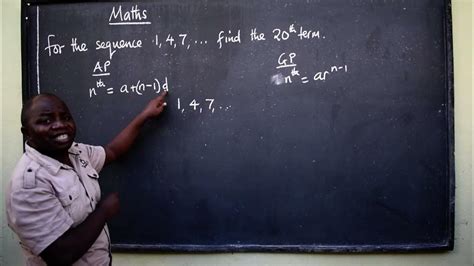 Maths
for the sequence 1, 4, 7, ... find the 20th term.
AP
nth = a+(n-1)d
1, 4, 7, ...
GP
nth = ar^n-1